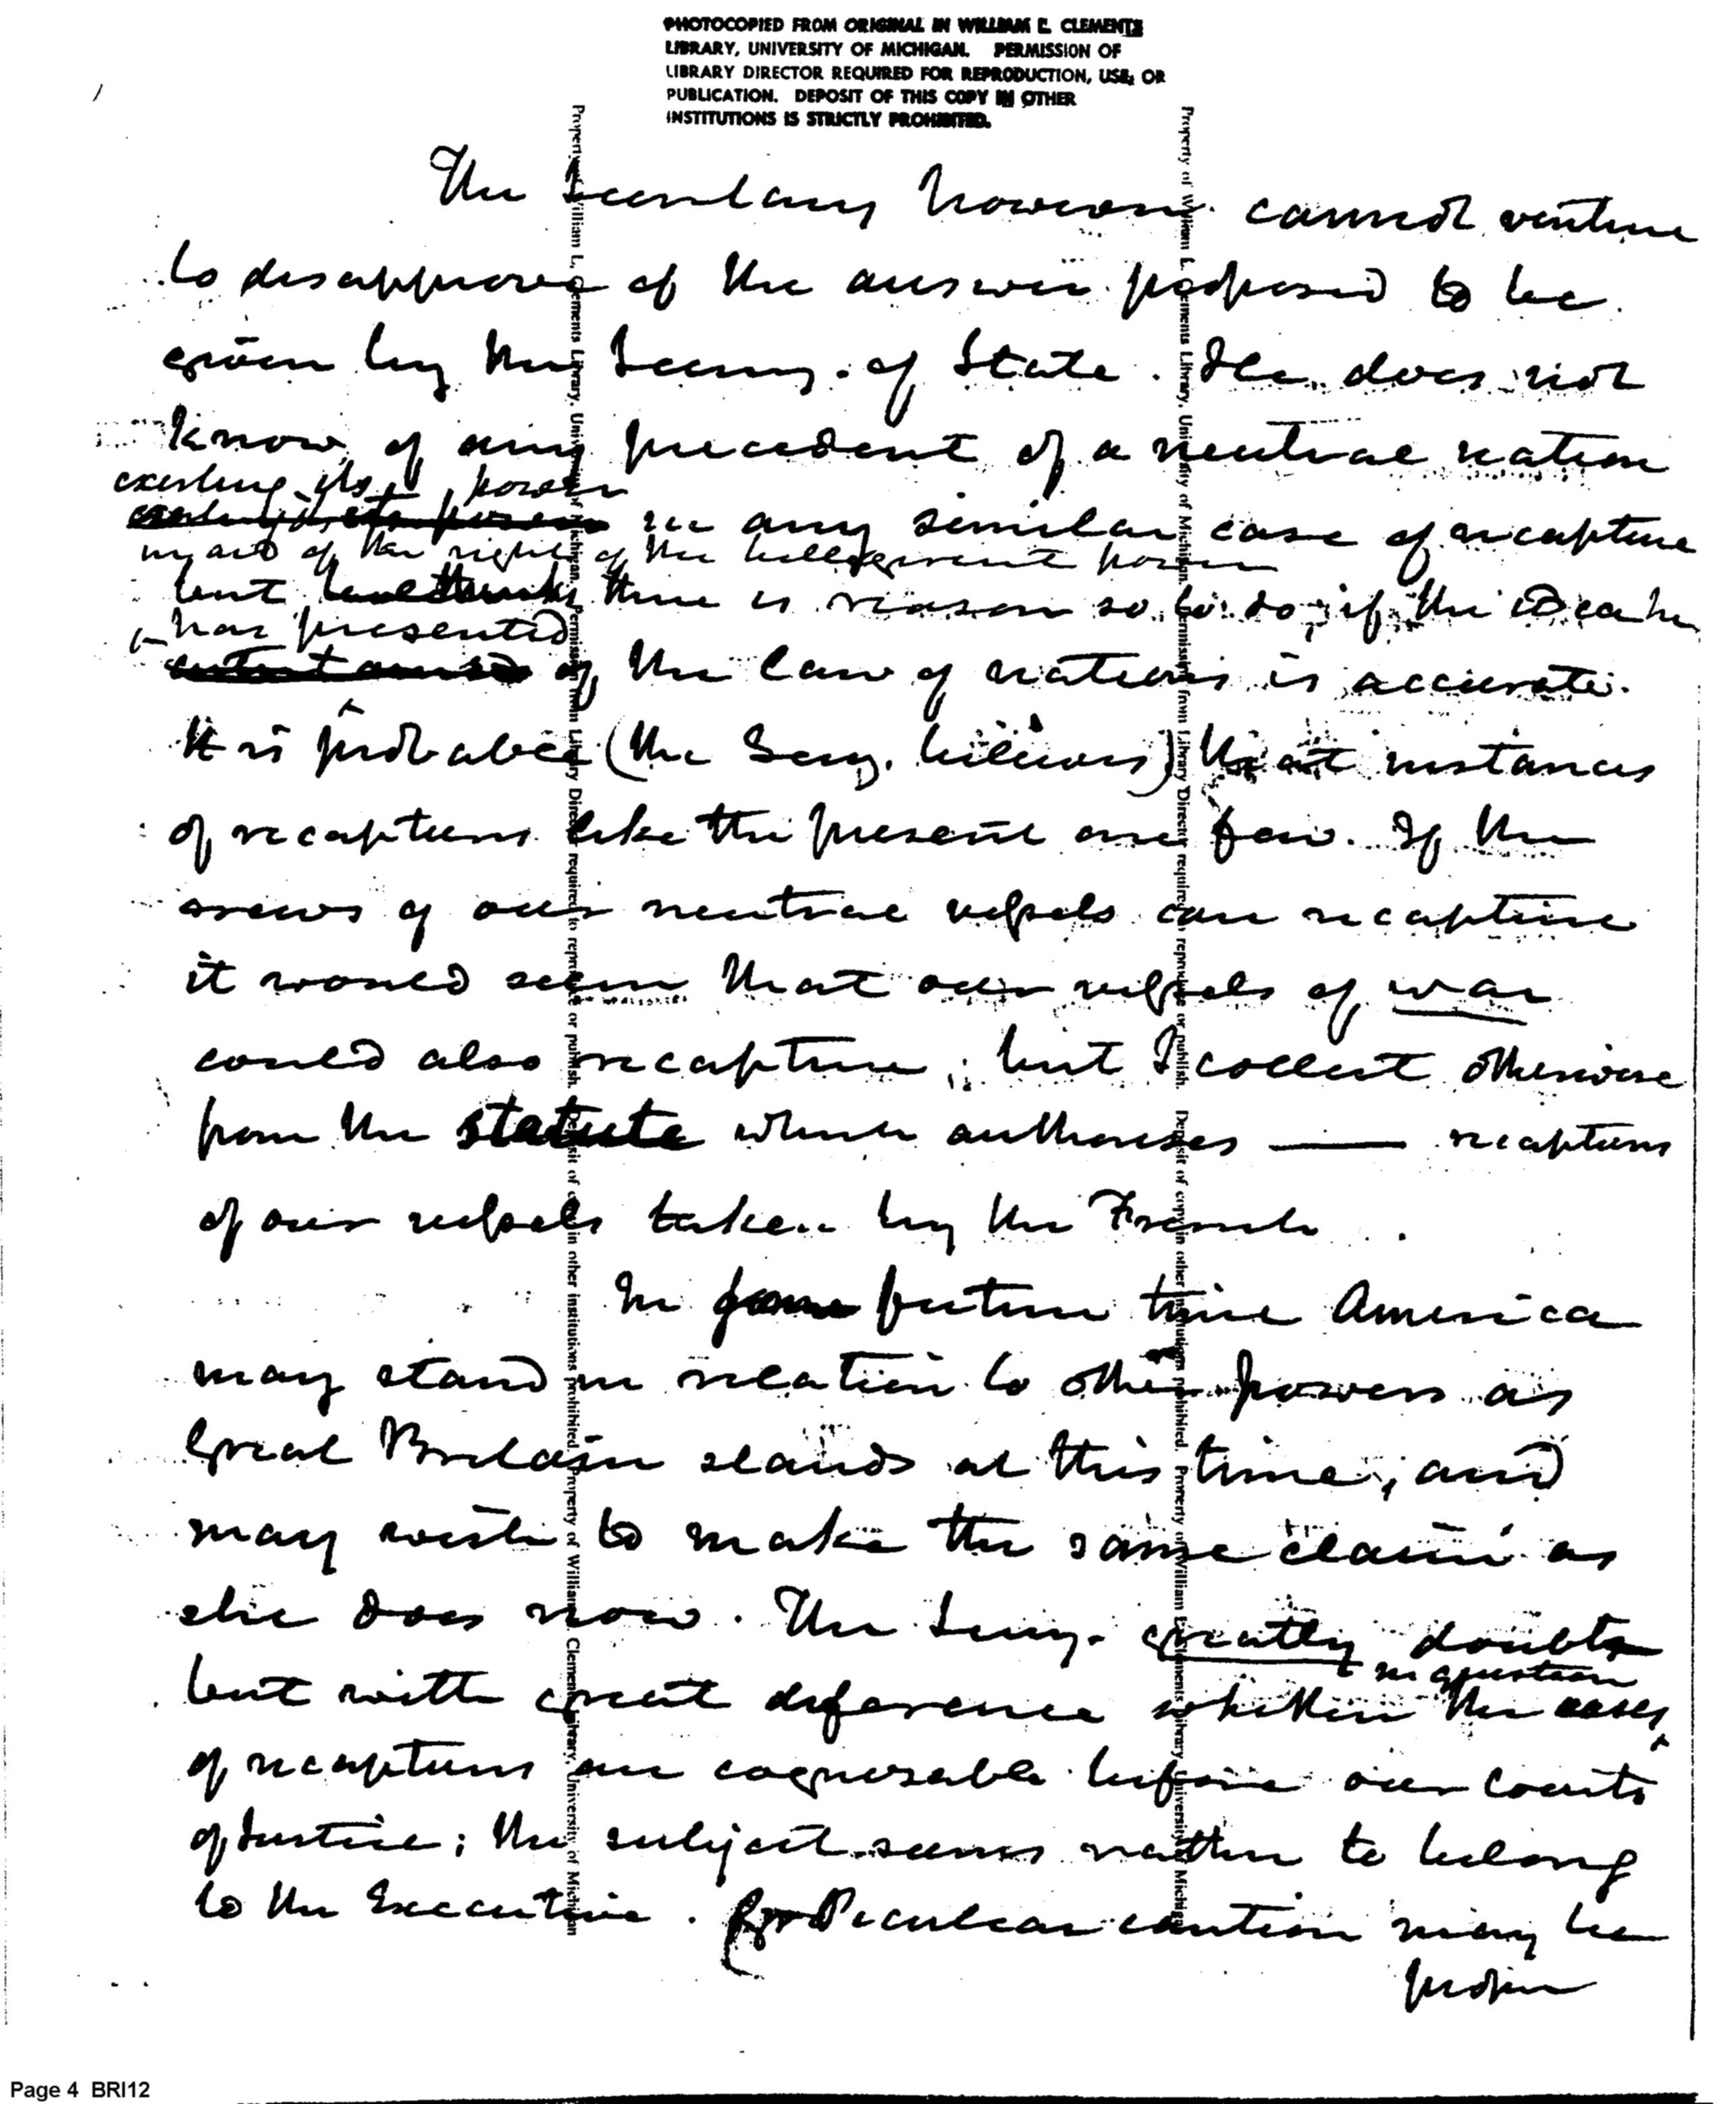 PHOTOCOPIED FROM ORIGINAL IN WILLIAM L. CLEMENTS
LIBRARY, UNIVERSITY OF MICHIGAN. PERMISSION OF
LIBRARY DIRECTOR REQUIRED FOR REPRODUCTION, USE, OR
PUBLICATION. DEPOSIT OF THIS COPY IN OTHER
INSTITUTIONS IS STRICTLY PROHIBITED.
The Secretary however cannot venture
to disapprove of the answer proposed to be
given by the Secry. of State. He does not
know of any precedent of a neutral nation
exerting its power
exerting its power in any similar case of recapture
in aid of the rights of the belligerent power
but he thinks there is reason so to do, if the idea he
has presented
of the law of nations is accurate.
It is probable (the Secy. believes) that instances
of recapture like the present are few. If the
crews of our neutral vessels can recapture
it would seem that our vessels of war
could also recapture; but I collect otherwise
from the statute which authorises —— recapture
of our vessels taken by the French.
In some future time America
may stand in relation to other powers as
Great Britain stands at this time, and
may wish to make the same claim as
she does now. The Secry. greatly doubts
in question
but with great deference whether the cases
of recapture are cognisable before our Courts
of Justice; the subject seems rather to belong
to the Executive. Peculiar caution may be
proper
Property of William L. Clements Library, University of Michigan. Permission from Library Director required to reproduce or publish. Deposit of copy in other institutions prohibited. Property of William L. Clements Library, University of Michigan
Property of William L. Clements Library, University of Michigan. Permission from Library Director required to reproduce or publish. Deposit of copy in other institutions prohibited. Property of William L. Clements Library, University of Michigan
Page 4 BRI12